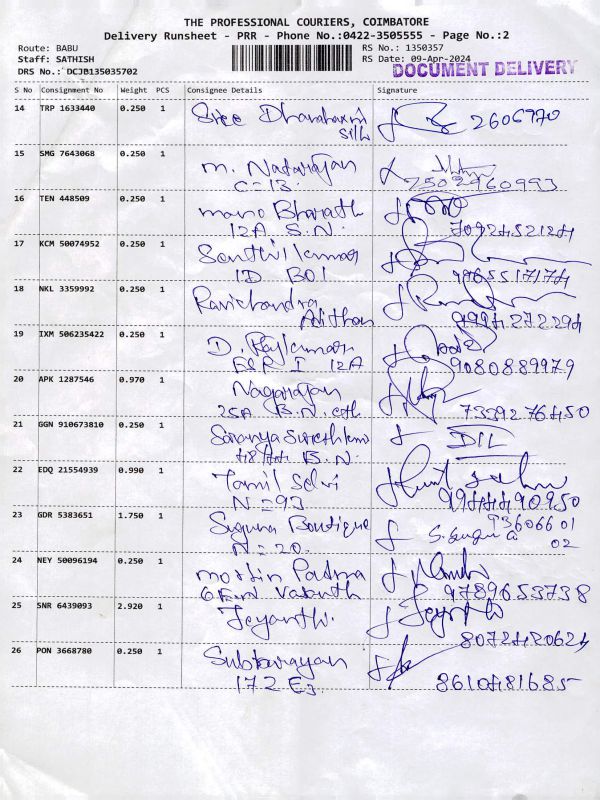 THE PROFESSIONAL COURIERS, COIMBATORE
Delivery Runsheet - PRR - Phone No.:0422-3505555 - Page No.:2
Route: BABU RS No.: 1350357
Staff: SATHISH RS Date: 09-Apr-2024
DRS No.: DCJB135035702 DOCUMENT DELIVERY
S No Consignment No Weight PCS Consignee Details Signature
14 TRP 1633440 0.250 1 Sree Dhanalaxmi 2606970
Silk
15 SMG 7643068 0.250 1 m. Natarajan
C-13. 7502960993
16 TEN 448509 0.250 1 mano Bharath
12A S.N. 7092452124
17 KCM 50074952 0.250 1 Senthilkumar
1D BOI 9965517174
18 NKL 3359992 0.250 1 Ravichandra
Adithan 9994272294
19 IXM 506235422 0.250 1 D. Rajkumar
I 12A 9080889979
20 APK 1287546 0.970 1 Nagarajan
25A B.N. 7339276450
21 GGN 910673810 0.250 1 Saranya Sureshkumar
B.N.
22 EDQ 21554939 0.990 1 Tamil Selvi
N-93 9944490950
23 GDR 5383651 1.750 1 Suguna Boutique 93606601
N-20. S. Suguna 02
24 NEY 50096194 0.250 1 Padma
Vasanth 9789653738
25 SNR 6439093 2.920 1 Jeyanthi. Jeyanthi
8072420624
26 PON 3668780 0.250 1 Subbarayan
172 8610481685